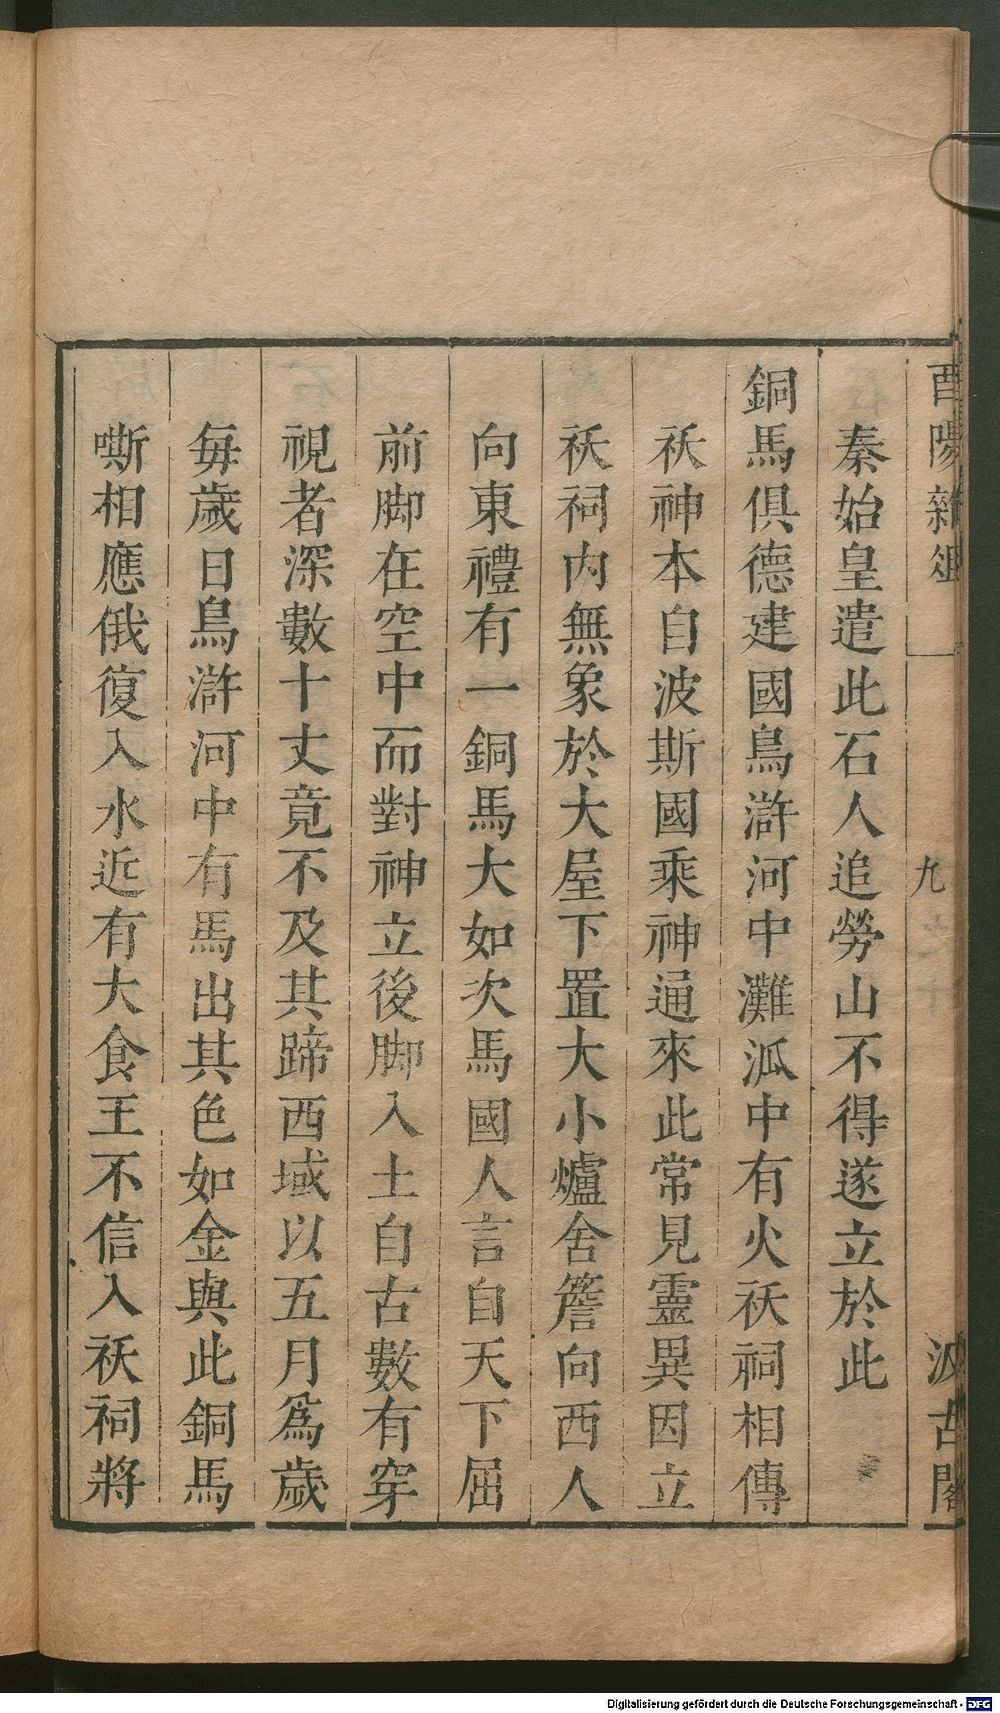 酉陽雜俎
九
汲古閣
秦始皇遣此石人追勞山不得遂立於此
銅馬俱德建國烏滸河中灘泒中有火祅祠相傳
祅神本自波斯國乘神通來此常見靈異因立
祅祠内無象於大屋下置大小爐舍簷向西人
向東禮有一銅馬大如次馬國人言自天下屈
前脚在空中而對神立後脚入土自古數有穿
視者深數十丈竟不及其蹄西域以五月爲歲
每歲日烏滸河中有馬出其色如金與此銅馬
嘶相應俄復入水近有大食王不信入祅祠將
Digitalisierung gefördert durch die Deutsche Forschungsgemeinschaft - DFG